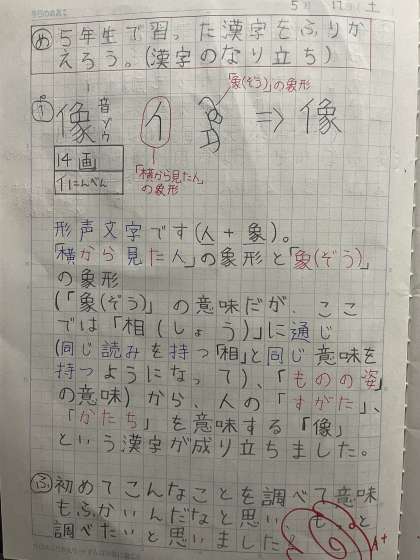 5月 12 土
め 5年生で習った漢字をふりか
えろう。(漢字のなり立ち)
「象(ぞう)」の象形
像 音 ゾウ イ => 像
14画
イにんべん
「横から見た人」
の象形
形声文字です(人+象)。
「横から見た人」の象形と「象(ぞう)」
の象形
(「象(ぞう)」の意味だが、ここ
では「相(しょう)」に通じ
(同じ読みを持つ「相」と同じ意味を
持つようになって)、「ものの姿」
の意味)から、人の「すがた」、
「かたち」を意味する「像」
という漢字が成り立ちました。
ふ 初めてこんなことを調べて意味
もふかいんだなと思い もっと
調べたいと思いました。
A+